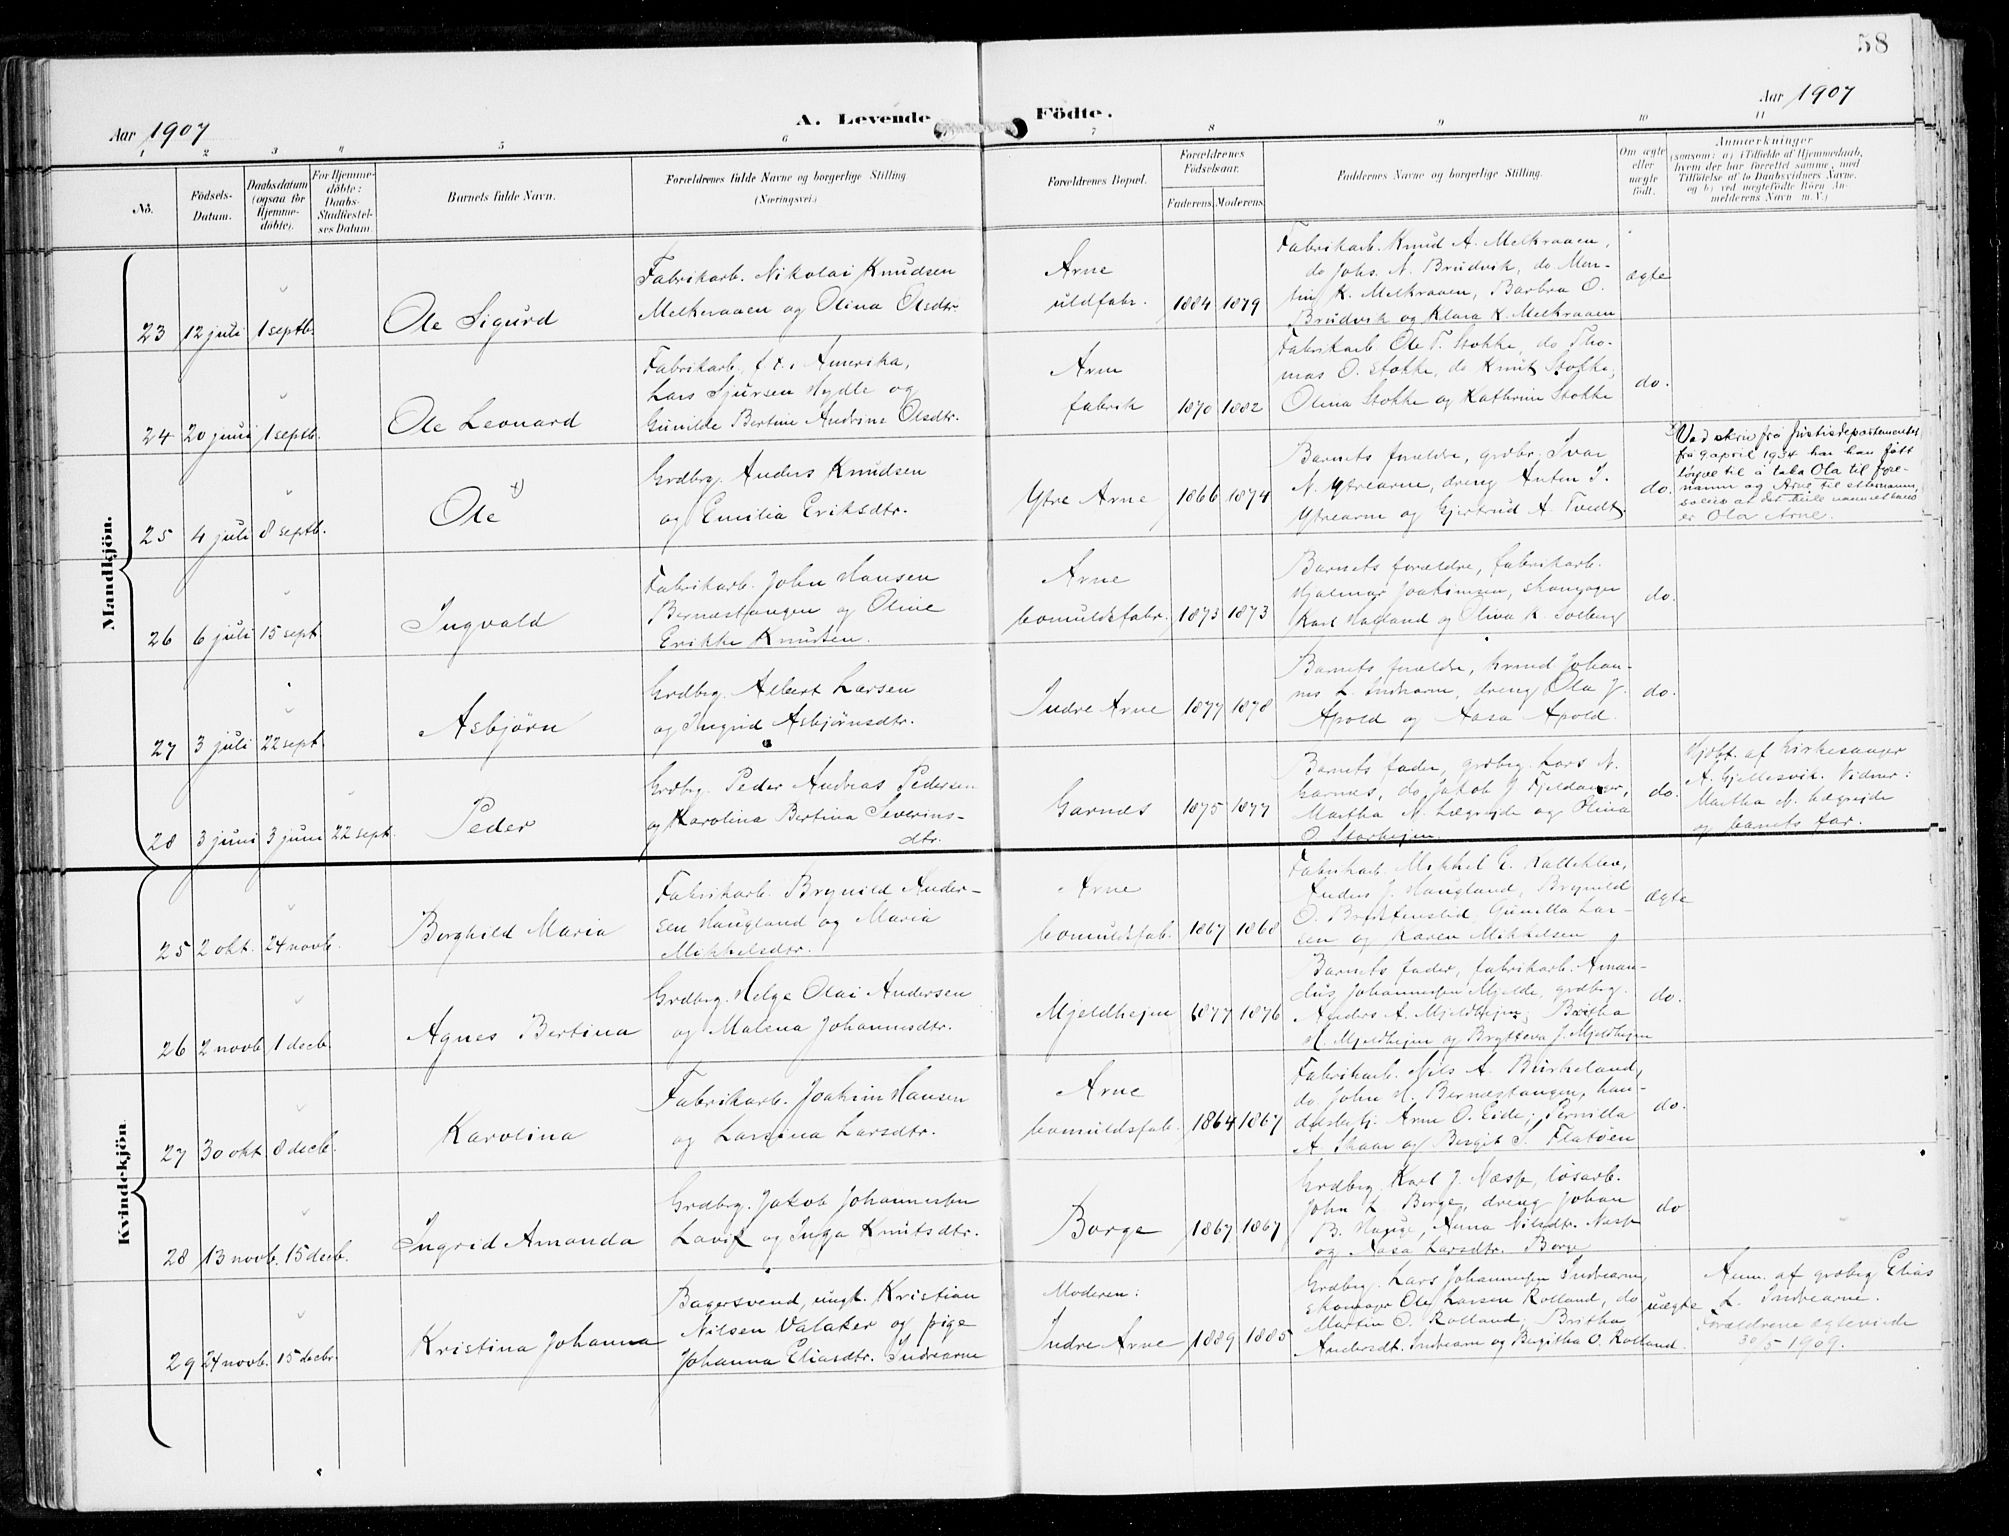 58
Aar 1907
A. Levende Födte.
Aar 1907
1 2 3 4 5 6 7 8 9 10 11
No.
Födsels-
Datum.
Daabsdatum
(ogsaa for
Hjemme-
döbte).
For Hjemme-
döbte:
Daabs-
Stadfæstel-
ses Datum
Barnets fulde Navn.
Forældrenes fulde Navne og borgerlige Stilling
(Næringsvei.)
Forældrenes Bopæl.
Forældrenes
Födselsaar.
Faderens. Moderens.
Faddernes Navne og borgerlige Stilling.
Om ægte
eller
uægte
födt.
Anmærkninger
(saasom: a) i Tilfælde af Hjemmedaab,
hvem der har forrettet samme, med
Tilföielse af to Daabsvidners Navne,
og b) ved uægtefödte Börn An-
melderens Navn m. V.)
Mandkjön.
23 12 juli 1 septb.
Ole Sigurd
Fabrikarb. Nikolai Knudsen
Melkeraaen og Olina Olsdtr.
Arne
uldfabr.
1884 1879
Fabrikarb. Knud A. Melkraaen,
do Johs. N. Brudvik, do Mon-
tin K. Melkraaen, Barbra O.
Brudvik og Klara K. Melkraaen
ægte
24 20 juni 1 septb.
Ole Leonard
Fabrikarb. f. t. i Amerika,
Lars Sjursen Hydle og
Gunilde Bertine Andrine Olsdtr.
Arne
fabrik
1870 1882
Fabrikarb. Ole T. Stokke, do Tho-
mas O. Stokke, do Knut Stokke,
Olena Stokke og Kathrine Stokke
do.
25 4 juli 8 septb.
Ole x)
Grdbrg. Anders Knudsen
og Emilia Eriksdtr.
Ytre Arne
1866 1874
Barnets forældre, grdbr. Ivar
N. Ytrearne, dreng Anton I.
Ytrearne og Gjertrud A. Tvedt
do.
x) Ved skriv frå Justisdepartementet
frå 9 april 1934 har han fått
løyve til å taka Ola til fyre-
namn og Arne til etternamn,
soleis at det heile namnet hans
er Ola Arne.
26 6 juli 15 sept.
Ingvald
Fabrikarb. John Hansen
Bernestangen og Oline
Erikke Knudsen.
Arne
bomuldsfabr.
1873 1873
Barnets forældre, fabrikarb.
Hjalmar Joakimsen, skomager
Karl Hagland og Oliva K. Solberg
do.
27 3 juli 22 sept.
Asbjørn
Grdbrg. Albert Larsen
og Ingrid Asbjørnsdtr.
Indre Arne
1877 1878
Barnets forældre, Johan-
nes L. Indrearne, dreng Ola J.
Apold og Aasa Apold.
do.
28 3 juni 3 juni 22 sept.
Peder
Grdbrg. Peder Andreas Pedersen
og Karolina Bertina Severins-
dtr.
Garnes
1875 1877
Barnets fader, grdbrg. Lars N.
Garnes, do Jakob J. Fjeldanger,
Martha N. Lægreide og Olina
O. Storhejen.
do.
Hjdbt. af kirkesanger
A. Gjellesvik. Vidner:
Martha N. Lægreide
og barnets far.
Kvindekjön.
25 2 okt. 24 novb.
Borghild Maria
Fabrikarb. Brynild Ander-
sen Haugland og Maria
Mikkelsdtr.
Arne
bomuldsfab.
1867 1868
Fabrikarb. Mikkel E. Kalleklev,
Anders J. Haugland, Brynild
O. Bruntenslid, Gunilla Lar-
sen og Karen Mikkelsen
ægte
26 2 novb. 1 decb.
Agnes Bertina
Grdbrg. Helge Olai Andersen
og Malena Johannesdtr.
Mjeldhejen
1877 1876
Barnets fader, fabrikarb. Aman-
dus Johannessen Mjelde, grdbrg.
Anders A. Mjeldhejen, Britha
H. Mjeldhejen og Brytteva J. Mjeldhejen
do.
27 30 okt 8 decb.
Karolina
Fabrikarb. Joakim Hansen
og Larsina Larsdtr.
Arne
bomuldsfab.
1864 1867
Fabrikarb. Nils A. Birkeland,
do. John H. Bernestangen, han-
delsbetj. Arne O. Eide, Pernilla
A. Skaar og Bergit S. Flatøen
do.
28 13 novb. 15 decb.
Ingrid Amanda
Grdbrg. Jakob Johannessen
Lavik og Inga Knutsdtr.
Borge
1867 1867
Grdbrg. Karl J. Næsse, løsarb.
John L. Borge, dreng Johan
B. Hauge, Anna Nilsdtr. Næsse
og Aasa Larsdtr. Borge
do
29 24 novb. 15 decbr.
Kristina Johanna
Bagersvend, ungk. Kristian
Nilsen Valaker og pige
Johanna Eliasdtr. Indrearne
Moderen:
Indre Arne
1889 1885
Grdbrg. Lars Johannessen Indrearne,
skomager Ole Larsen Rolland, do
Martin O. Rolland, Britha
Andersdt. Indrearne og Bergitha O. Rolland.
uægte
Anm. af grdbrg. Elias
L. Indrearne.
Forældrene ægteviede
30/5 1909.